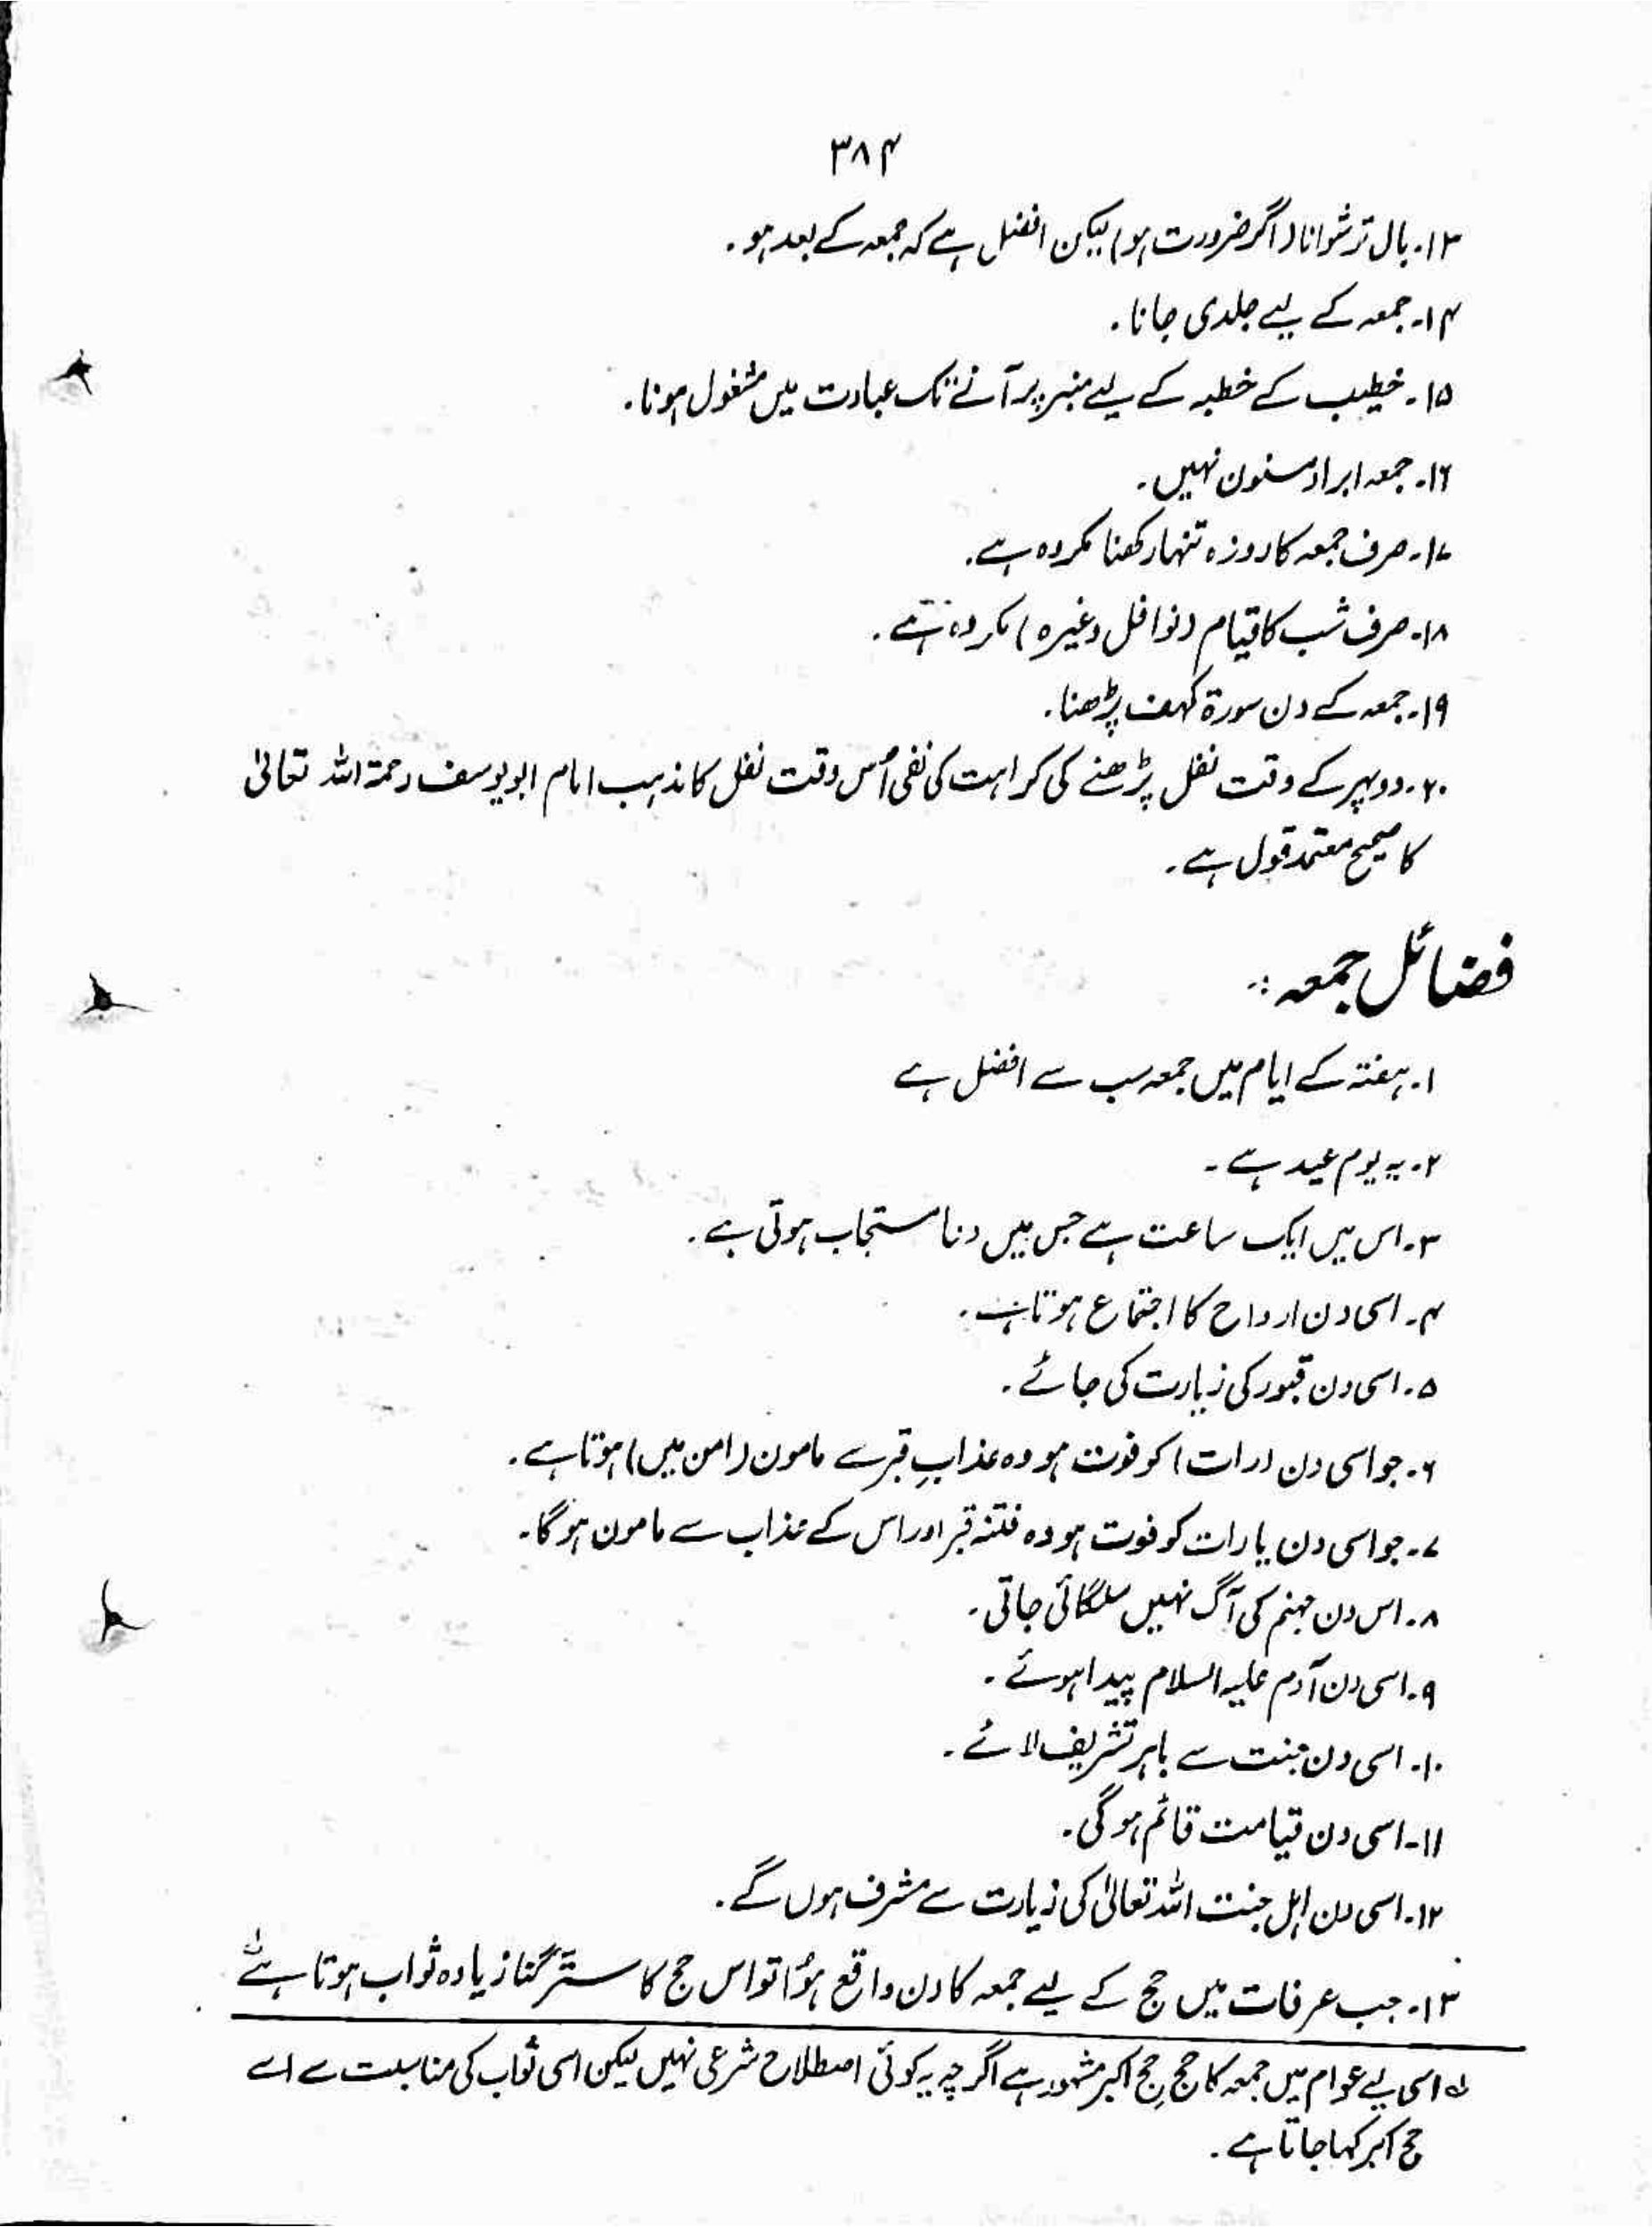 ۳۸۴
۱۳۔ بال ترشوانا (اگر ضرورت ہو) لیکن افضل ہے کہ جمعہ کے بعد ہو۔
۱۴۔ جمعہ کے لیے جلدی جانا۔
۱۵۔ خطیب کے خطبہ کے لیے منبر پر آنے تک عبادت میں مشغول ہونا۔
۱۶۔ جمعہ ابراد مسنون نہیں۔
۱۷۔ صرف جمعہ کا روزہ تنہا رکھنا مکروہ ہے۔
۱۸۔ صرف شب کا قیام (نوافل وغیرہ) مکروہ ہے۔
۱۹۔ جمعہ کے دن سورۃ کہف پڑھنا۔
۲۰۔ دوپہر کے وقت نفل پڑھنے کی کراہت کی نفی اُس وقت نفل کا مذہب امام ابو یوسف رحمۃ اللہ تعالیٰ
کا صحیح معتمد قول ہے۔
فضائل جمعہ :
۱۔ ہفتہ کے ایام میں جمعہ سب سے افضل ہے
۲۔ یہ یوم عید ہے۔
۳۔ اس میں ایک ساعت ہے جس میں دعا مستجاب ہوتی ہے۔
۴۔ اسی دن ارواح کا اجتماع ہوتا ہے۔
۵۔ اسی دن قبور کی زیارت کی جائے۔
۶۔ جو اسی دن (رات) کو فوت ہو وہ عذابِ قبر سے مامون (امن میں) ہوتا ہے۔
۷۔ جو اسی دن یا رات کو فوت ہو وہ فتنہ قبر اور اس کے عذاب سے مامون ہو گا۔
۸۔ اس دن جہنم کی آگ نہیں سلگائی جاتی۔
۹۔ اسی دن آدم علیہ السلام پیدا ہوئے۔
۱۰۔ اسی دن جنت سے باہر تشریف لائے۔
۱۱۔ اسی دن قیامت قائم ہو گی۔
۱۲۔ اسی دن اہل جنت اللہ تعالیٰ کی زیارت سے مشرف ہوں گے۔
۱۳۔ جب عرفات میں حج کے لیے جمعہ کا دن واقع ہؤا تو اس حج کا ستّر گنا زیادہ ثواب ہوتا ہے لہ
لہ اسی لیے عوام میں جمعہ کا حج حجِ اکبر مشہور ہے اگرچہ یہ کوئی اصطلاح شرعی نہیں لیکن اسی ثواب کی مناسبت سے اسے
حج اکبر کہا جاتا ہے۔